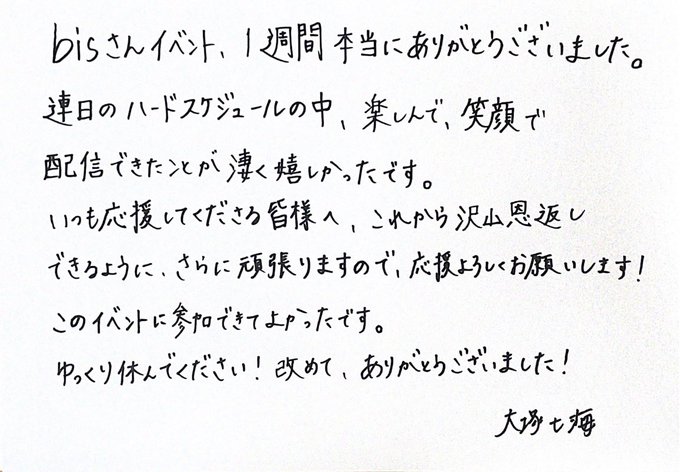 bisさんイベント、1週間本当にありがとうございました。
連日のハードスケジュールの中、楽しんで、笑顔で
配信できたことが凄く嬉しかったです。
いつも応援してくださる皆様へ、これから沢山恩返し
できるように、さらに頑張りますので、応援よろしくお願いします！
このイベントに参加できてよかったです。
ゆっくり休んでください！改めて、ありがとうございました！
大塚七海